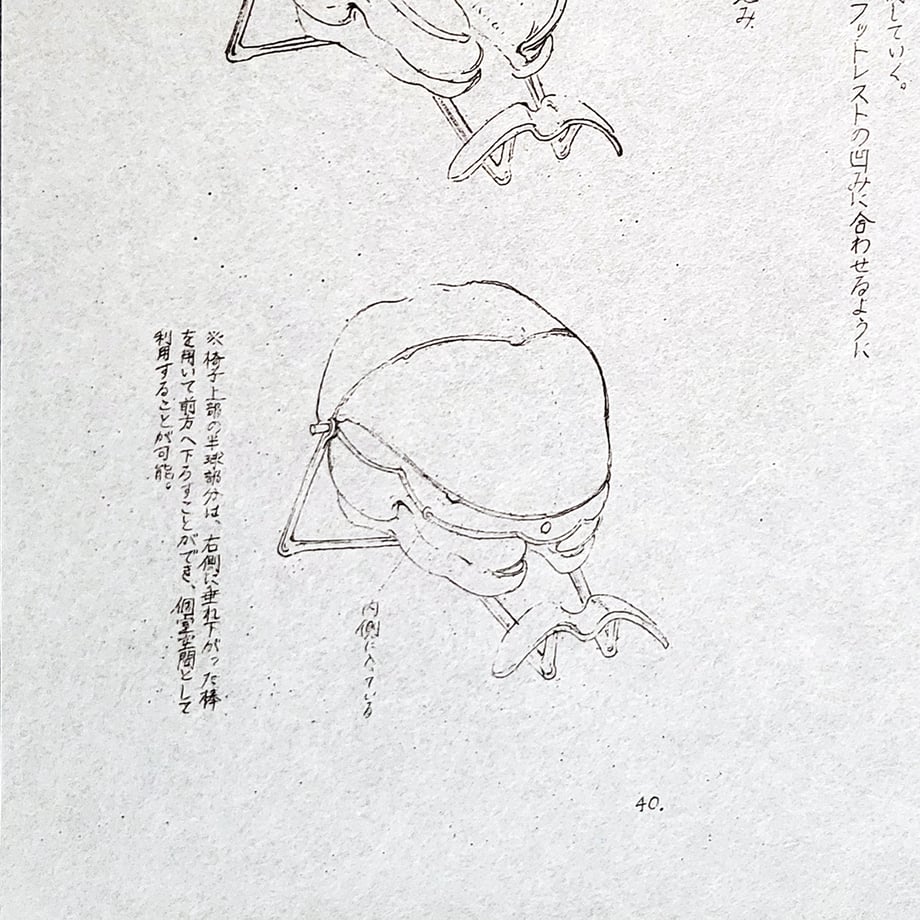 していく。
フットレストの凹みに合わせるように
み
※椅子上部の半球部分は、右側に垂れ下がった棒
を用いて前方へ下ろすことができ、個室空間として
利用することが可能。
内側に入っている
40.